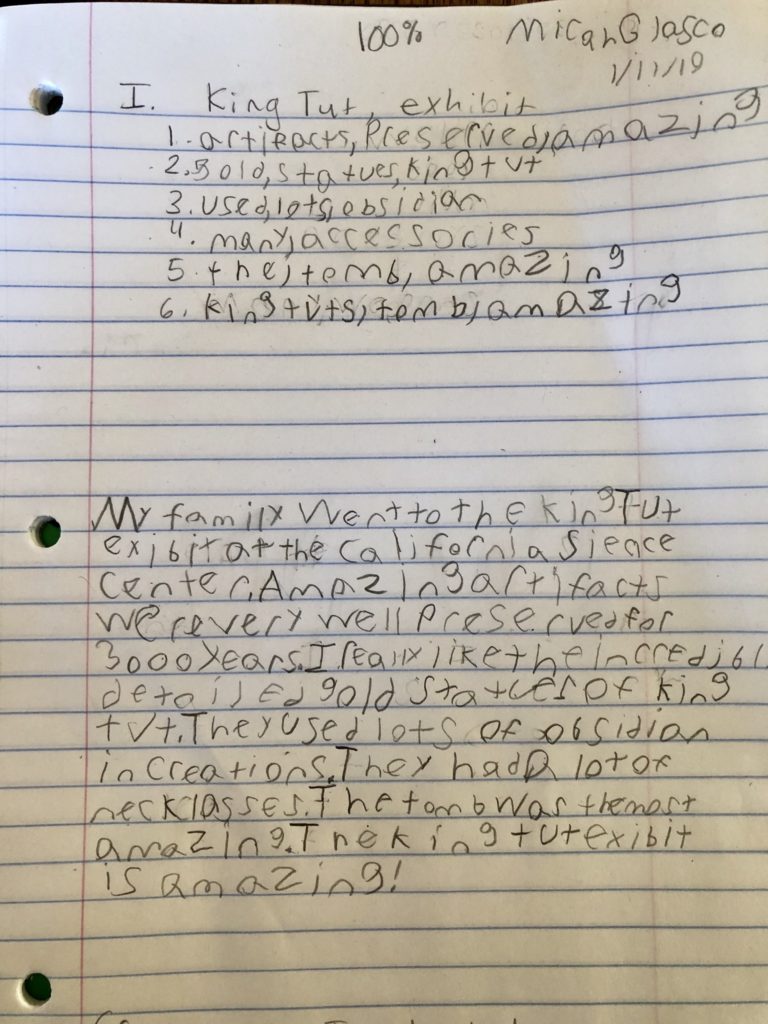 100% Micah Glasco
1/11/19
I. King Tut, exhibit
1. artifacts, Preserved, amazing
2. gold, statues, king tut
3. used, lots, obsidian
4. many, accessocies
5. the, tomb, amazing
6. king tuts, tomb, amazing
My family Went to the king Tut
exibit at the California Sience
Center. Amazing artifacts
were very well Preserved for
3000 years. I really like the incredibl
detailed gold statues of king
tut. They used lots of obsidian
in creations. They had a lot of
necklasses. The tomb was the most
amazing. The king tut exibit
is amazing!